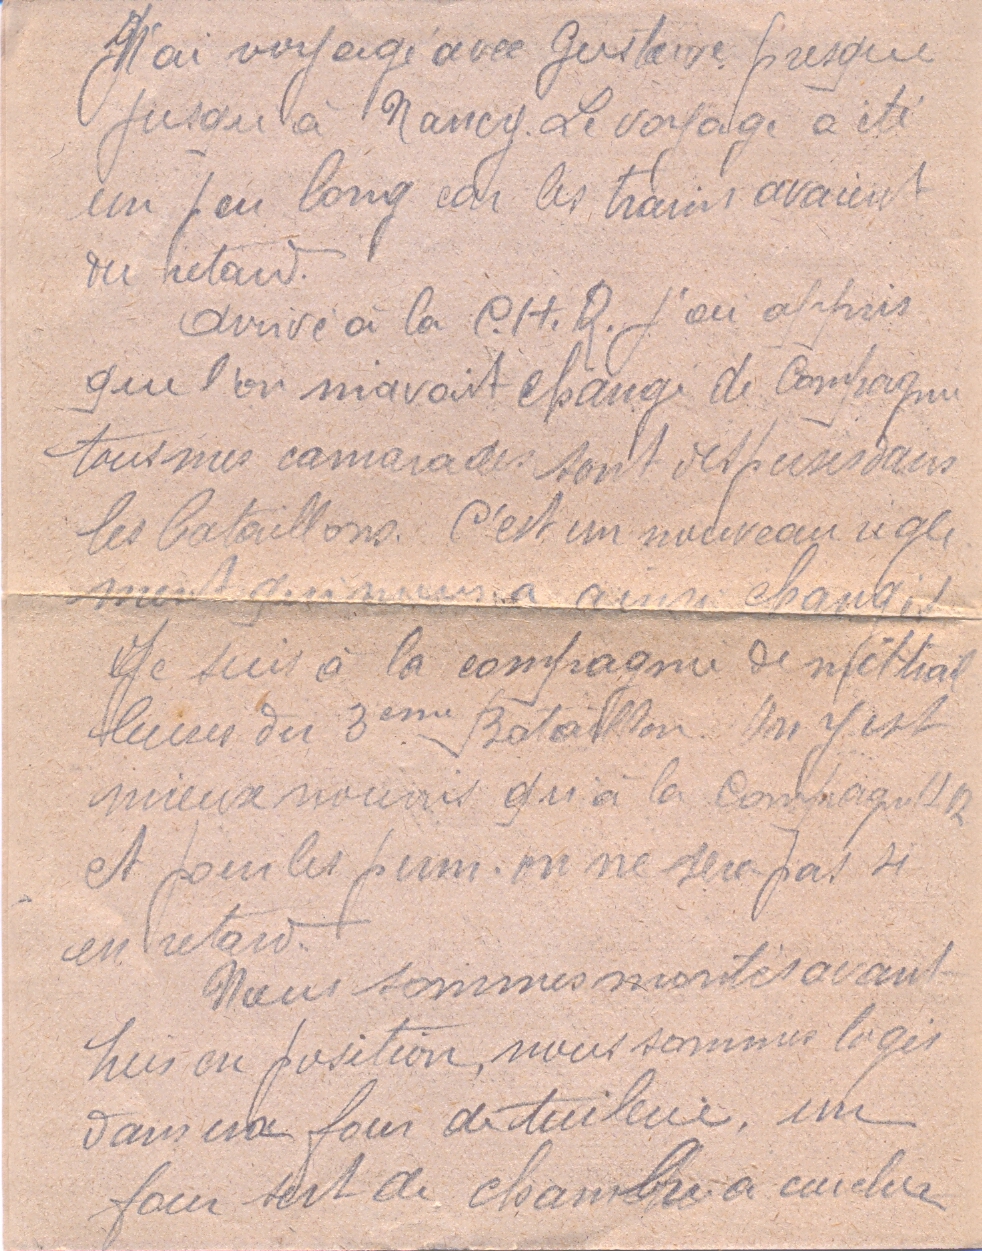 J'ai voyagé avec Gustave presque
jusqu'à Nancy. Le voyage a été
un peu long car les trains avaient
du retard.
Arrivé à la C.H.R. j'ai appris
que l'on m'avait changé de Compagnie
tous mes camarades sont dispersés dans
les bataillons. C'est un nouveau règle
ment qui nous a ainsi changés
Je suis à la compagnie de mitrail
leuses du 3eme Bataillon On y est
mieux nourris qu'à la Compagnie HR
Et pour les on ne sera pas si
en retard.
Nous sommes montés avant
hier en position, nous sommes logés
dans un four de tuilerie, un
four sert de chambre a coucher